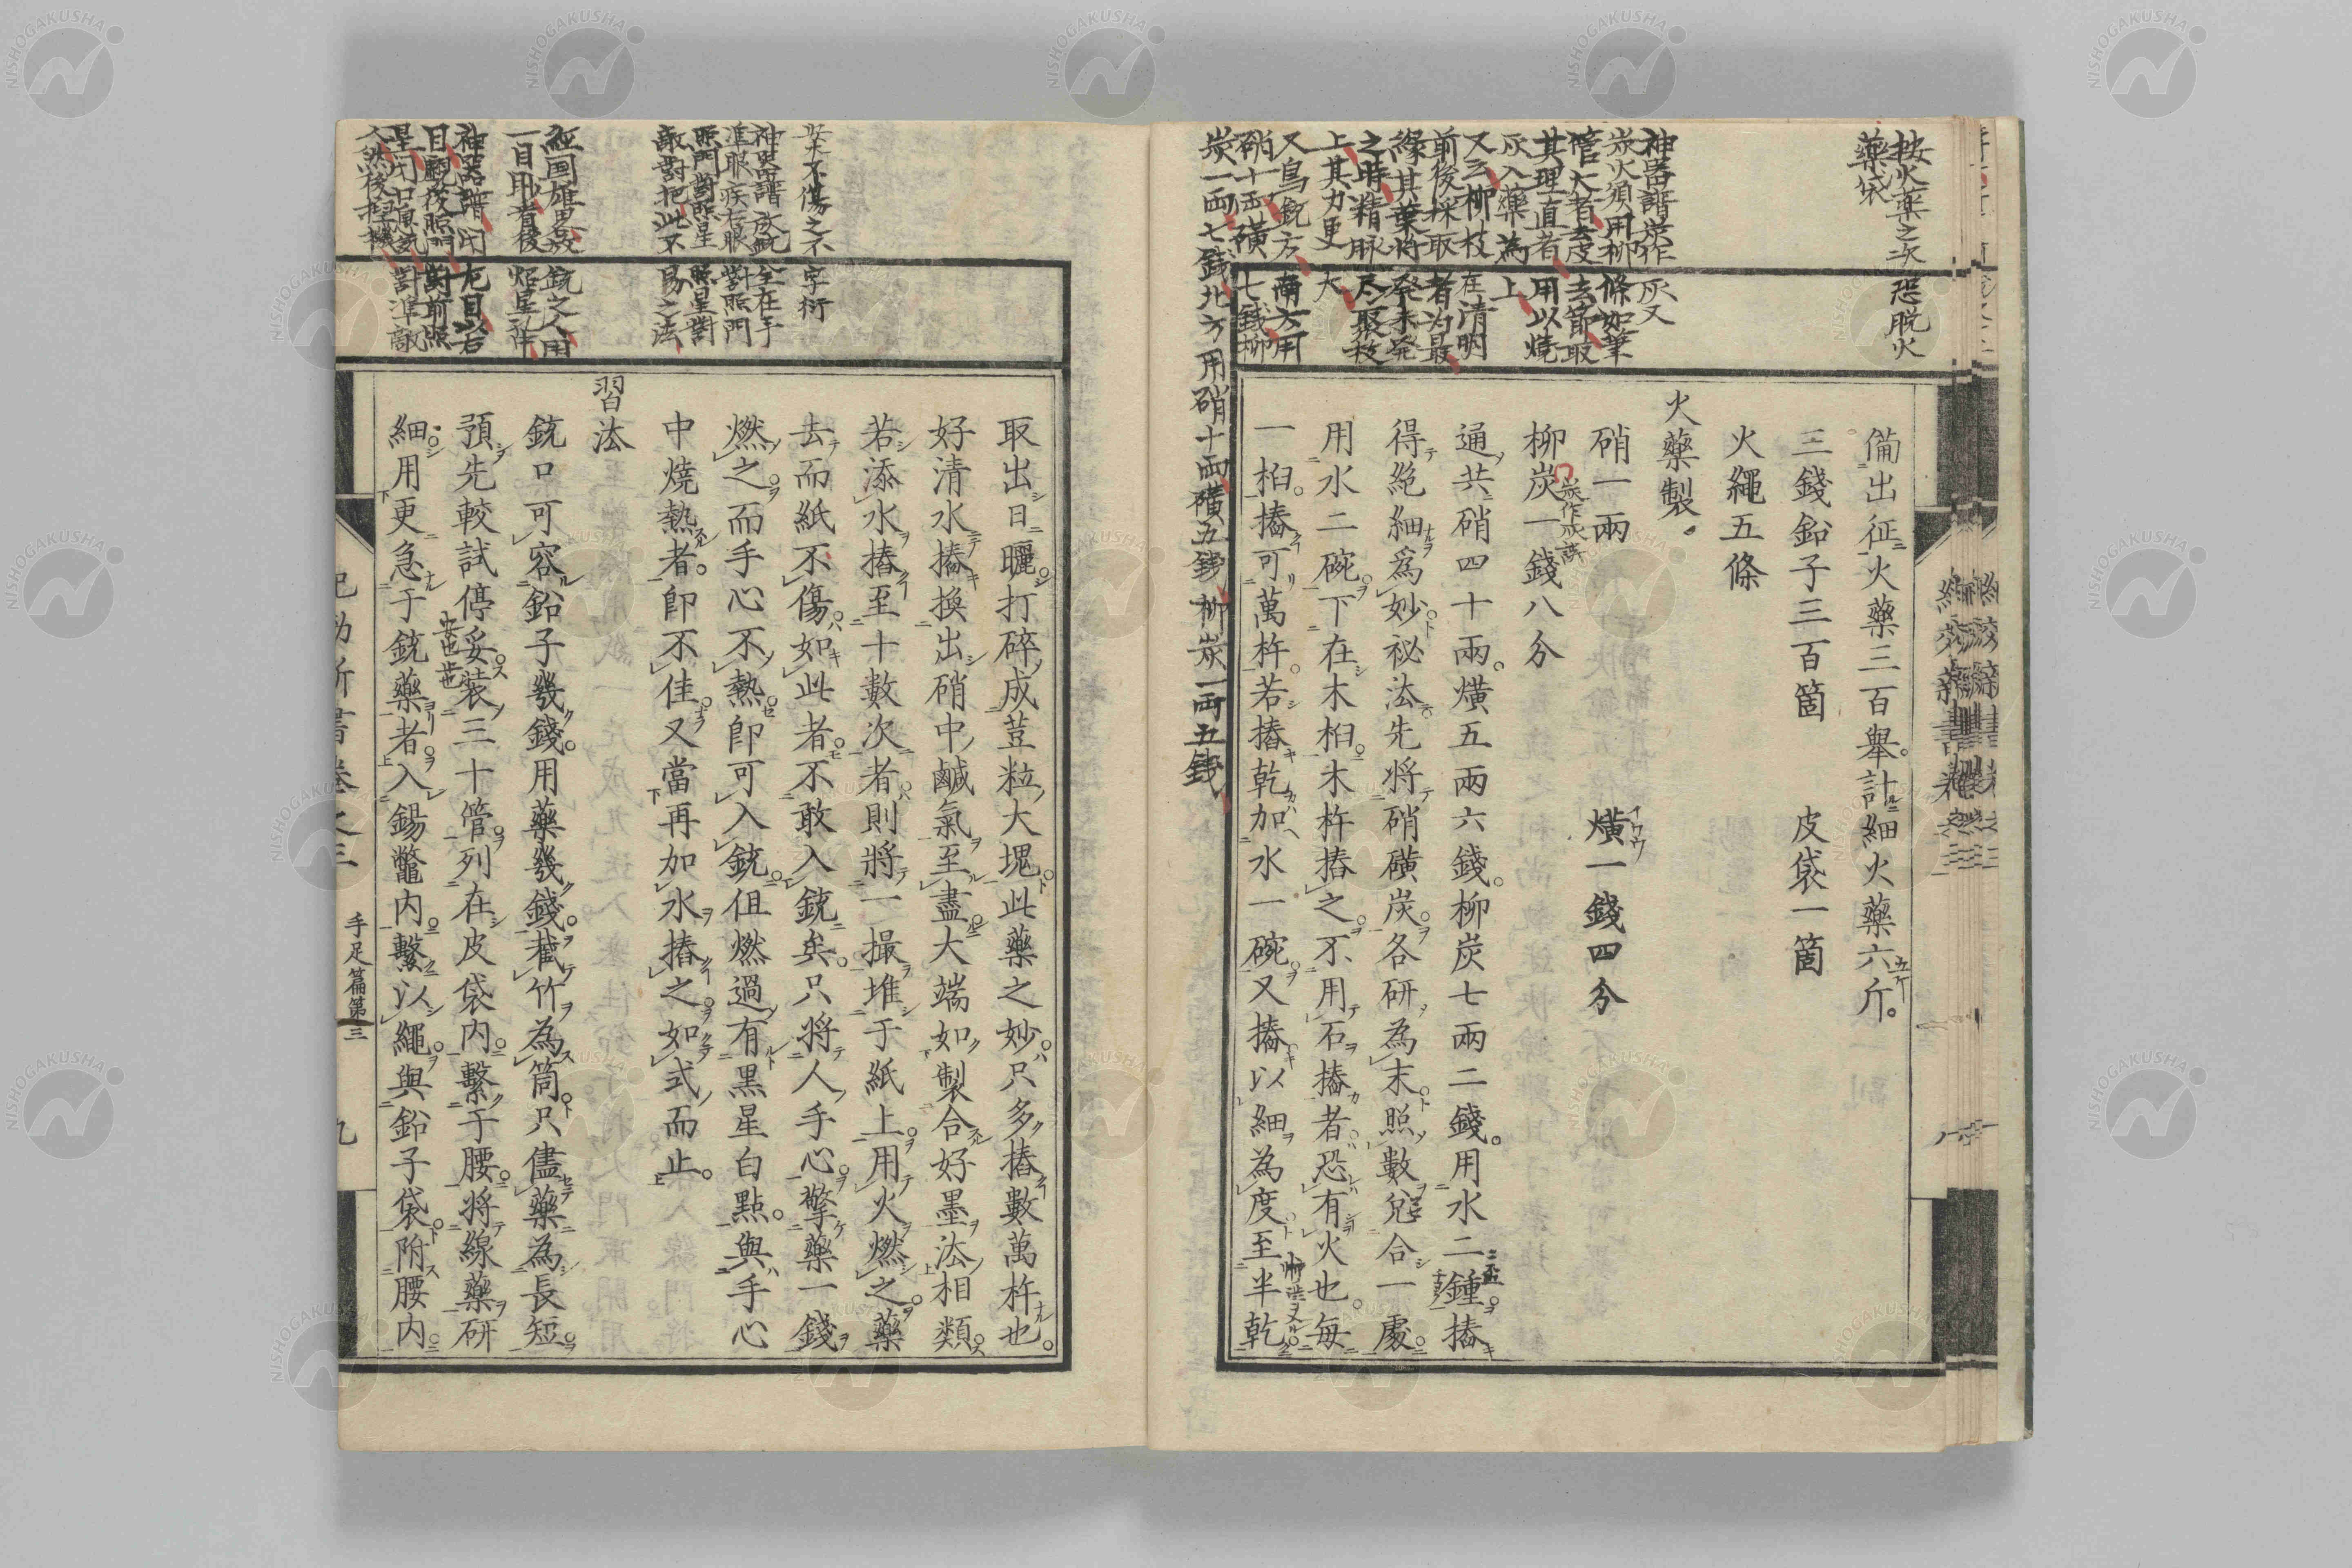 按火藥之次恐脱火
藥袋
神器譜炭作灰又
炭火須用柳條如筆
管大者去皮去節取
其理直者用以燒
灰入藥為上
又云柳枝在清明
前後採取者為最
緣其葉將發未發
之時精脉尽聚枝
上其力更大
又鳥銃方南方用
硝十両磺七銭柳
炭一両七銭北方用硝十両磺五銭柳炭一両五銭
備出征火藥三百舉計細火藥六斤
三錢鉛子三百箇 皮袋一箇
火繩五條
火藥製
硝一兩 熿一錢四分
イワウ
柳炭一錢八分
炭作灰
通共硝四十兩熿五兩六錢柳炭七兩二錢用水二鍾搽
得絶細爲妙祕法先將硝磺炭各研為末照數兌合一處
用水二碗下在木桕木杵搽之不用石搽者恐有火也每
一桕搽可萬杵若搽乾加水一碗又搽以細為度至半乾
取出日曬打碎成荳粒大塊此藥之妙只多搽數萬杵也
好清水搽換出硝中鹹氣至盡大端如製合好墨法相類
若添水搽至十數次者則將一撮堆于紙上用火燃之藥
去而紙不傷如此者不敢入銃矣只將人手心擎藥一錢
燃之而手心不熱即可入銃但燃過有黒星白點與手心
中燒熱者即不佳又當再加水搽之如式而止
習法
銃口可容鉛子幾錢用藥幾錢截竹為筒只儘藥為長短
預先較試停妥裝三十管列在皮袋内繫于腰將線藥研
細用更急于銃藥者入錫鼈内繫以繩與鉛子袋附腰内
不傷之不字衍
神器譜放銃全在手
準眼疾右眼對照門
照門對照星照星對
敵對把此不易之法
経国雄畧放銃之人用
一目眇者後炤星
神器譜閉左目以右
目覷後照門對前照
星閉口息氣對準敵
人然後捏機
紀効新書卷之三
手足篇第三
九
NISHOGAKUSHA